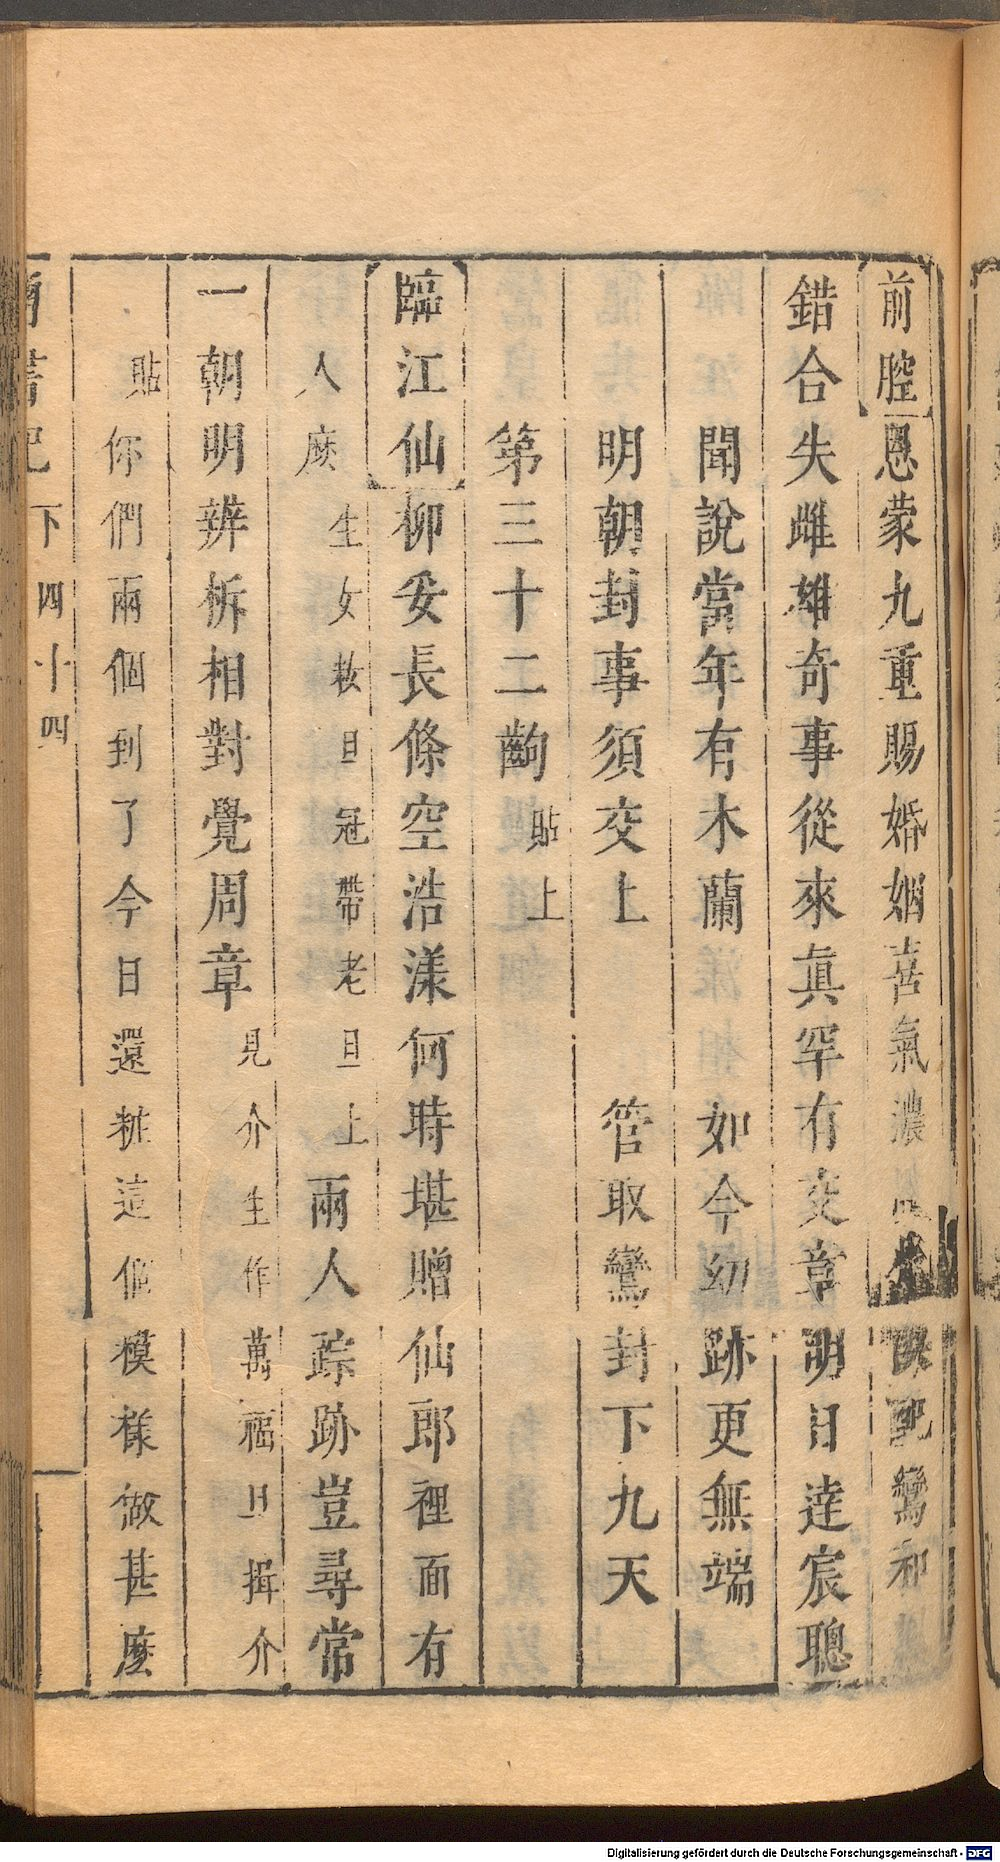 前腔恩蒙九重賜婚姻喜氣濃配鸞和
錯合失雌雄奇事從來真罕有交章明日達宸聰
聞說當年有木蘭 如今幻跡更無端
明朝封事須交上 管取鸞封下九天
第三十二齣貼上
臨江仙柳妾長條空浩漾何時堪贈仙郎裡面有
人麽生女粧旦冠帶老旦上兩人踪跡豈尋常
一朝明辨柝相對覺周章見介生作萬福旦揖介
貼你們兩個到了今日還粧這個模樣做甚麽
書記下四十四
Digitalisierung gefördert durch die Deutsche Forschungsgemeinschaft - DFG